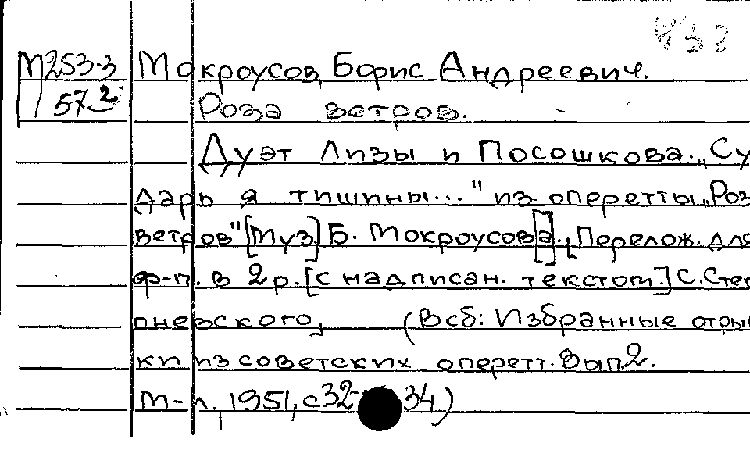 М253-3 Мокроусов, Борис Андреевич.
57-2 Роза ветров.
Дуэт Лизы и Посошкова. „Су
дарь я тишины..." из оперетты „Роз
ветров" [Муз] Б. Мокроусов[а]. [Перелож. для
ф-п. в 2 р. [с надписан. текстом.] С. Стем
пневского, (В сб: Избранные отрыв
ки из советских оперетт. Вып 2.
М-Л., 1951, с 32-34)